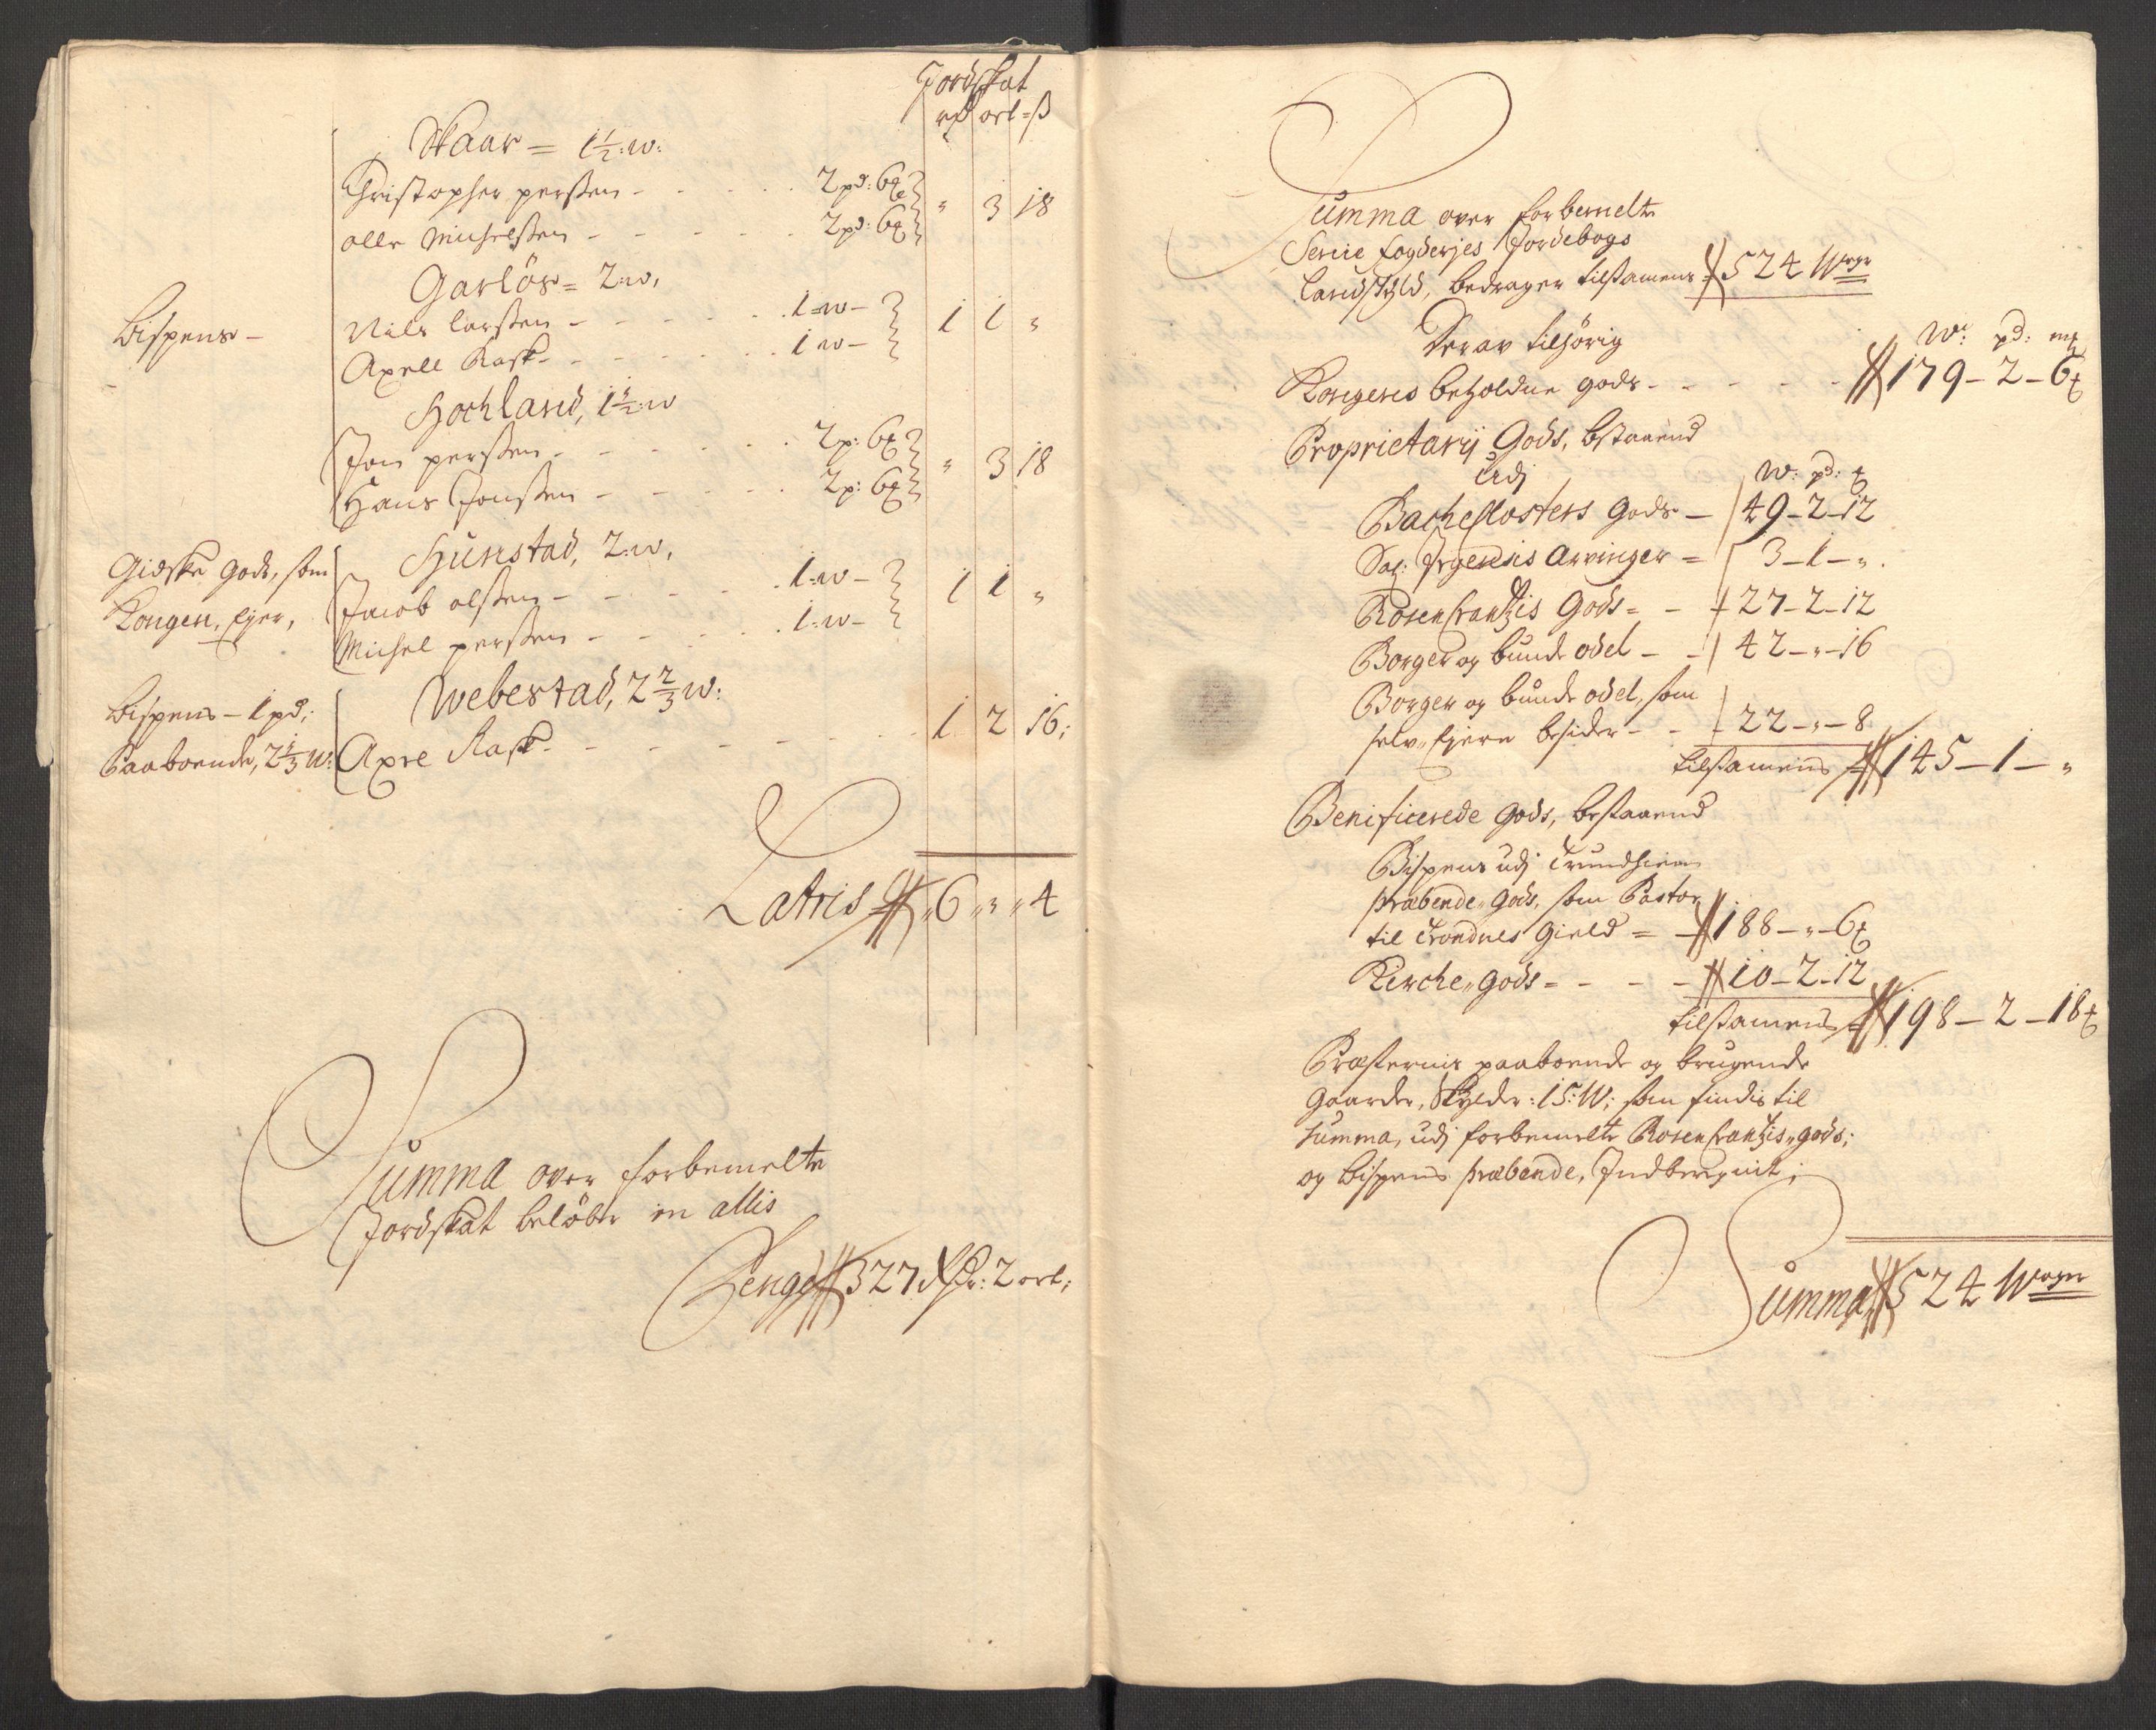 Jordskat
rd ort ß
Skaar = 1½: w:
Christopher perssen - - - - 2 pd: 6 ₰
" 3 18
olle Michelssen - - - - 2 pd: 6 ₰
Garlös = 2: w,
Bispens -
Nils larssen - - - - 1: w -
1 1 "
Axell Rask - - - - 1 w -
Hochland, 1½: w
Jon perssen - - - - 2 p: 6 ₰
" 3 18
Hans Jonssen - - - - 2 p: 6 ₰
Hunstad, 2: w,
Gidske gods, som
Kongen, Ejer,
Jacob olssen - - - - 1: w -
1 1 "
Michel perssen - - - - 1: w -
Webestad, 2⅔ w:
Bispens - 1 pd;
Paaboende, 2⅓ w:
Axre Rask - - - - 1 2 16;
Latris 6 " 3 " 4
Summa over forbemelte
Jordskat beløber in allis
Penge 327 Rdr: 2 ort;
Summa over forbemelte
Senie fogderjes Jordebogs
Landskyld, bedrager tilsamens 524 Woger
Derav tilhörig
W: pd: m₰
Kongens beholdne gods - - - - 179 - 2 - 6 ₰
Proprietarij Gods, bstaaend
Udj
W: pd: ₰
Bacheklosters Gods - 49 - 2 - 12
Sal: Irgensis Arvinger = 3 - 1 - "
Rosencrantzis Gods = - 27 - 2 - 12
Borger og bunde odel - - 42 - " - 16
Borger og bunde odel, som
selv Ejere besider - - 22 - " - 8
tilsamens 145 - 1 - "
Benificerede gods, bestaaend
Bispens udj Trundhiem
præbende gods, som Pastor
til Trondnes Gield = - 188 - " - 6 ₰
Kirche gods = - - - 10 - 2 - 12
tilsamens 198 - 2 - 18 ₰
Præsternis paaboende og brugende
gaarder, Skylder: 15: W; som findis til
summa, udj forbemelte Rosencrantzis gods;
og bispens præbende, Indberegnit;
Summa 524 Woger